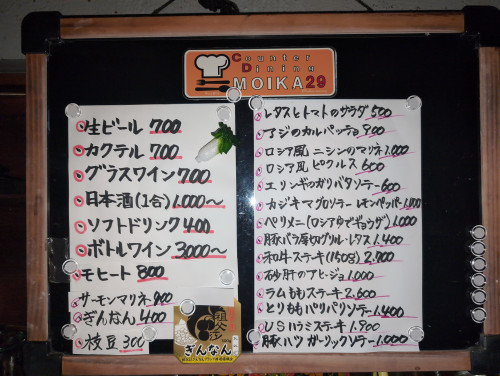 Counter
Dining
MOIKA29
生ビール 700
カクテル 700
グラスワイン 700
日本酒(1合) 1.000〜
ソフトドリンク 400
ボトルワイン 3000〜
モヒート 800
サーモンマリネ 900
ぎんなん 400
枝豆 300
祖父江
ぎんなん
レタスとトマトのサラダ 500
アジのカルパッチョ 900
ロシア風 ニシンのマリネ 1.000
ロシア風 ピクルス 600
エリンギのガリバタソテー 600
カジキマグロソテー レモンペッパー 1.000
ペリメニ(ロシアゆでギョウザ) 1.000
豚バラ厚切グリル・レタス 1.400
和牛ステーキ(150g) 2.900
砂肝のアヒージョ 1.000
ラムももステーキ 2.600
とりももパリパリソテー 1.400
USハラミステーキ 1.900
豚ハツ ガーリックソテー 1.000